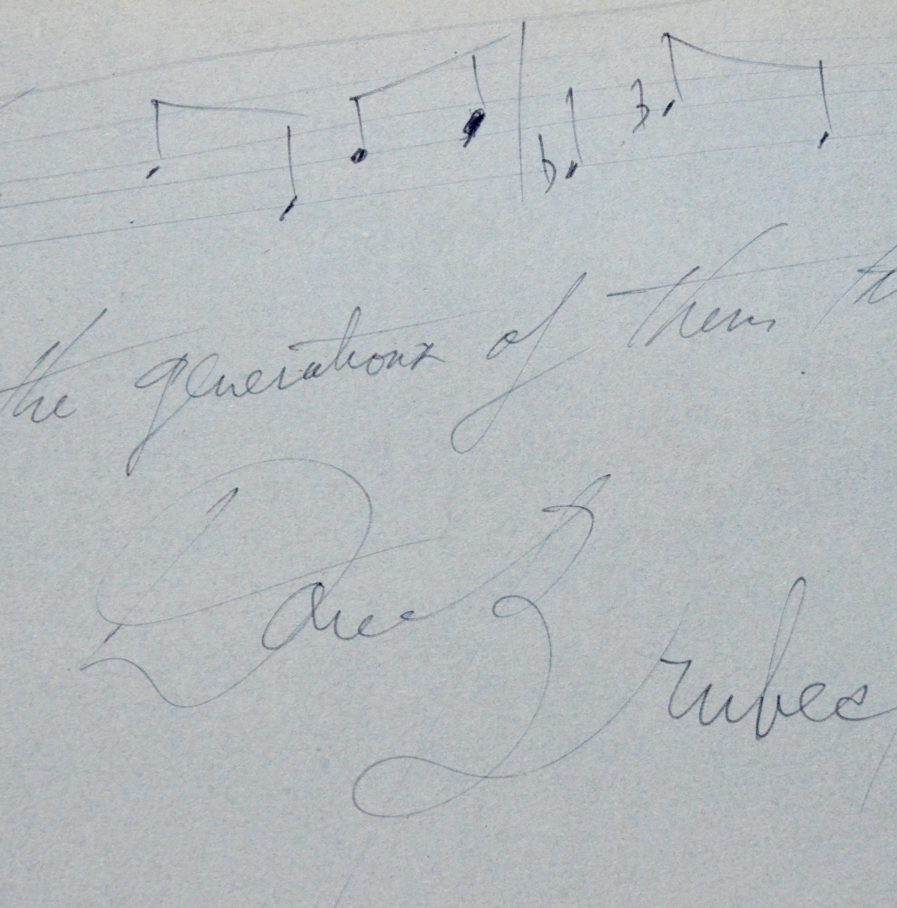 the generations of them
Dave Brubec